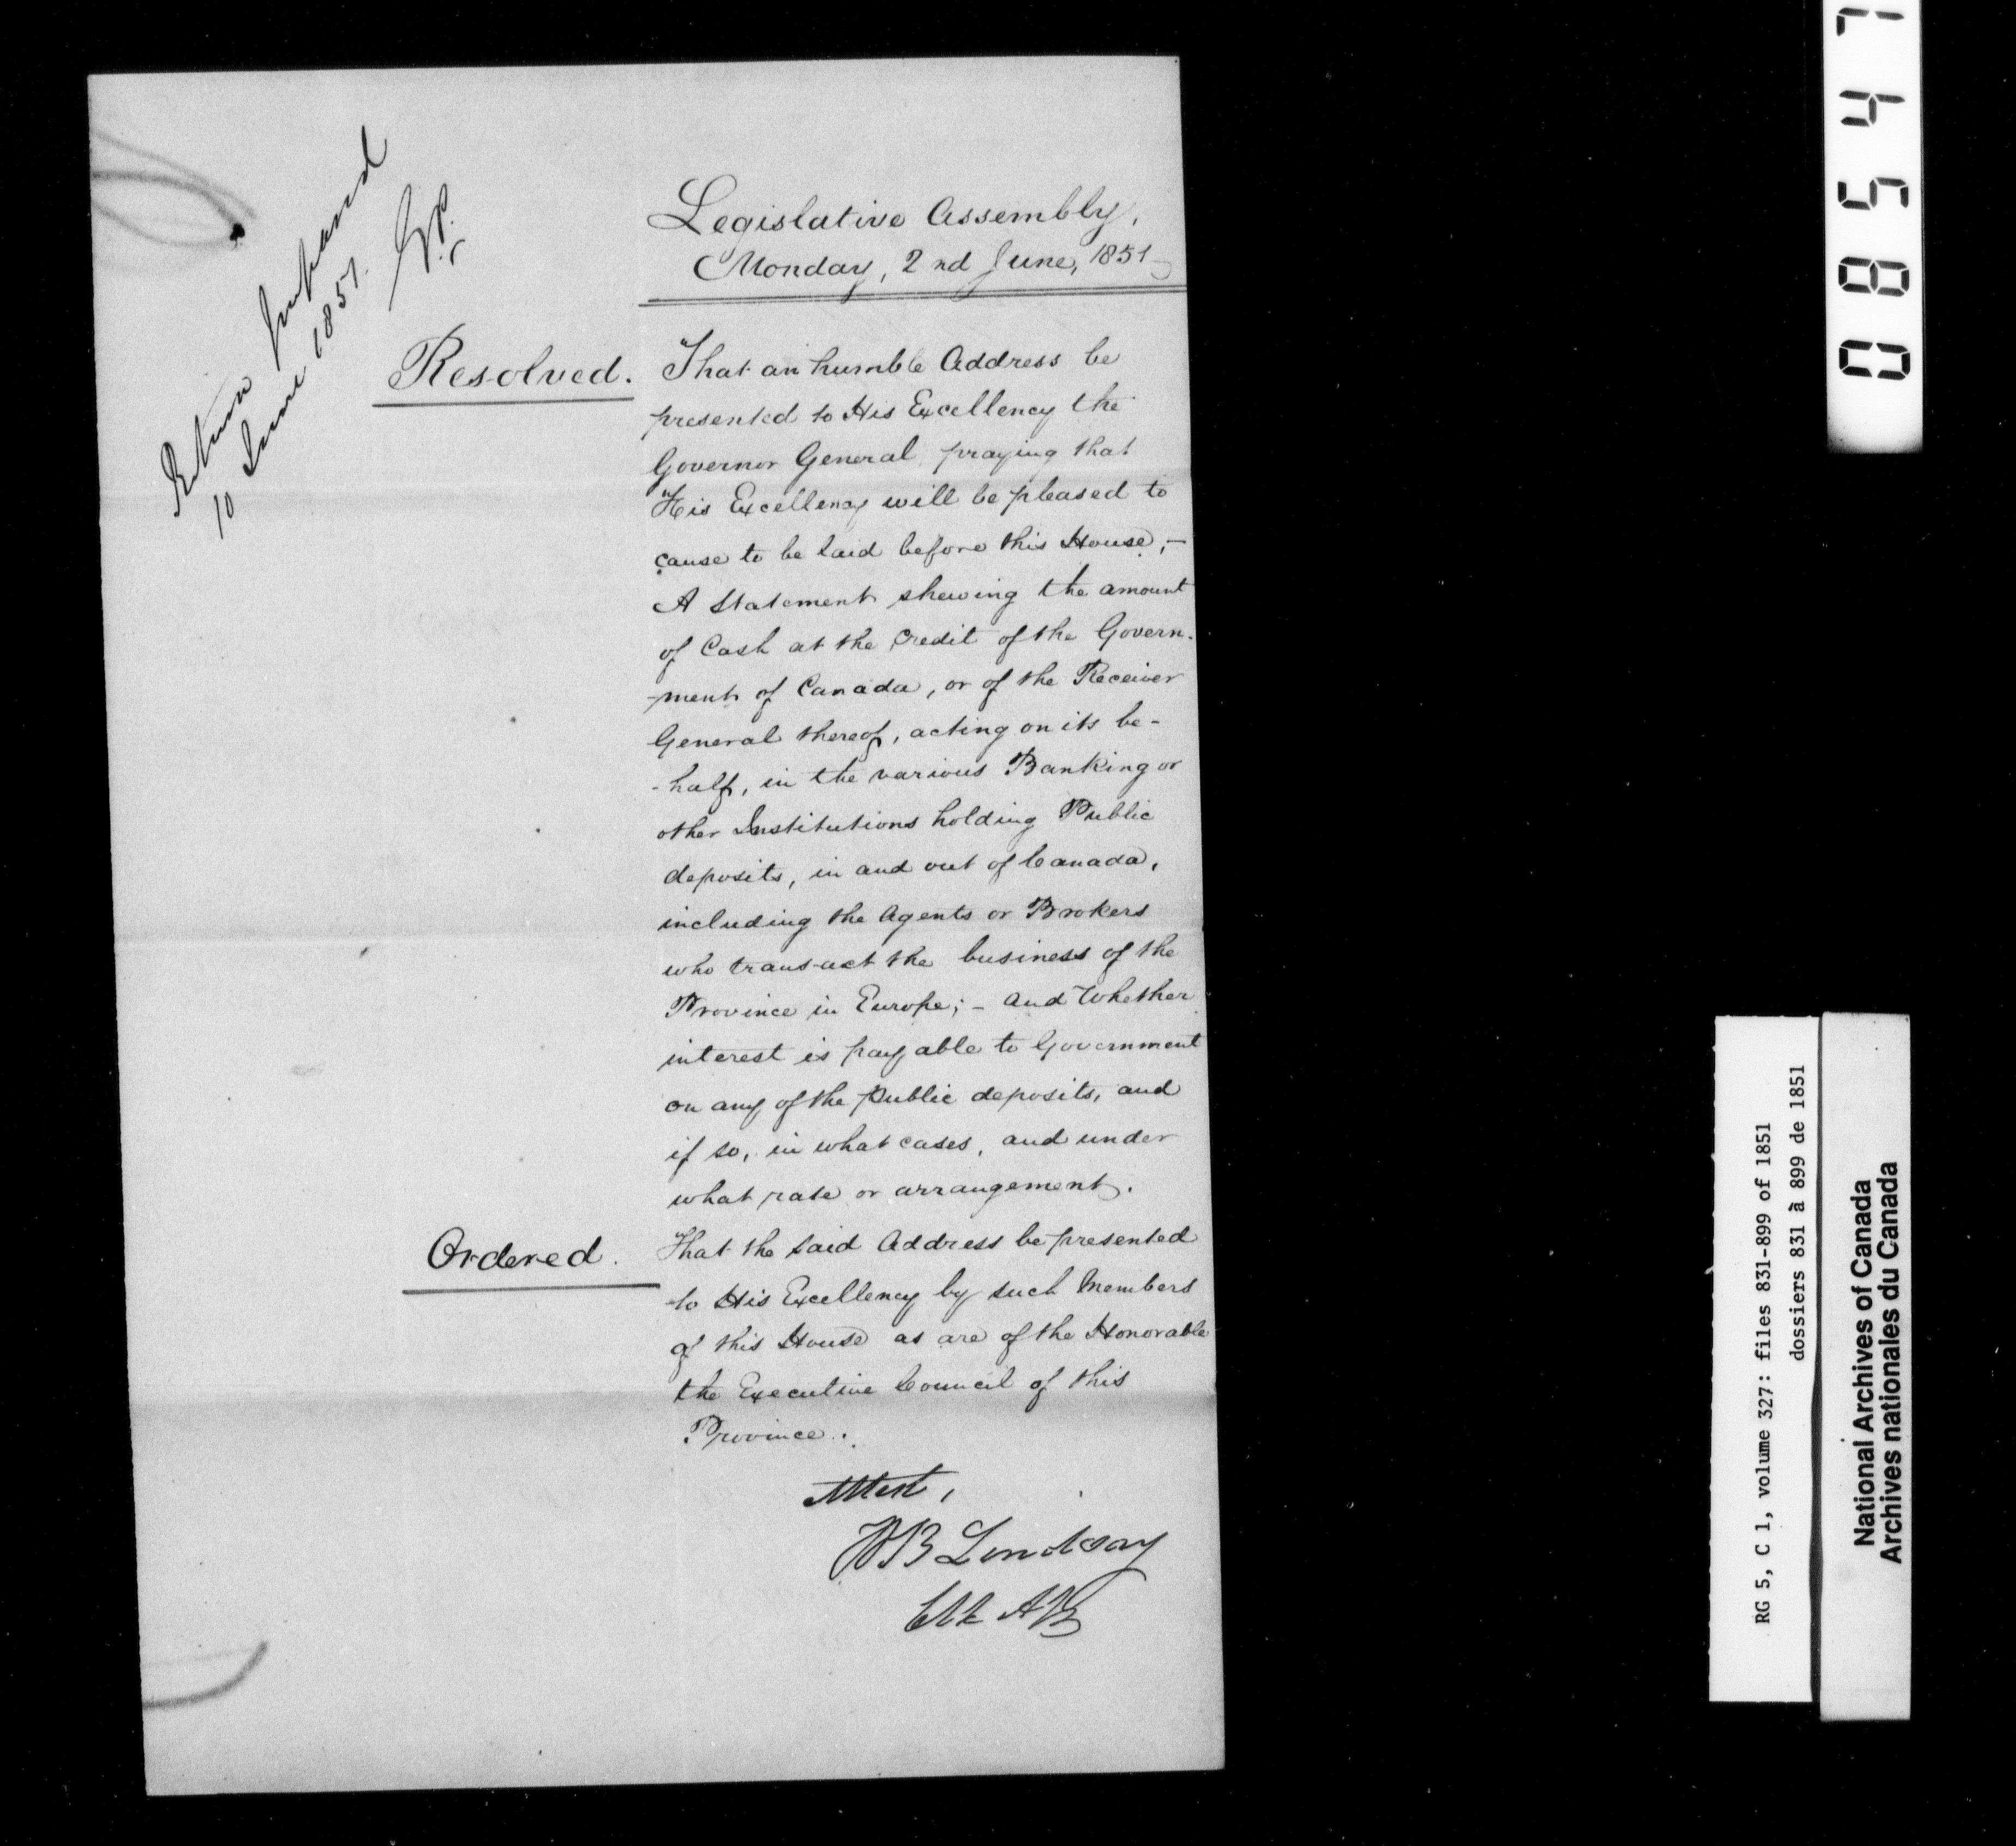 Return prepared
10 June 1851.
Legislative Assembly,
Monday, 2nd June, 1851
Resolved. That an humble Address be
presented to His Excellency the
Governor General, praying that
His Excellency will be pleased to
cause to be laid before this House;—
A Statement shewing the amount
of Cash at the Credit of the Govern-
-ment of Canada, or of the Receiver
General thereof, acting on its be-
-half, in the various Banking or
other Institutions holding Public
deposits, in and out of Canada,
including the Agents or Brokers
who transact the business of the
Province in Europe;— and Whether
interest is payable to Government
on any of the Public deposits, and
if so, in what cases, and under
what rate or arrangement.
Ordered. That the said Address be presented
to His Excellency by such Members
of this House as are of the Honorable
the Executive Council of this
Province.
Attest,
WB Lindsay
Clk
08547
RG 5, C 1, volume 327: files 831-899 of 1851
dossiers 831 à 899 de 1851
National Archives of Canada
Archives nationales du Canada